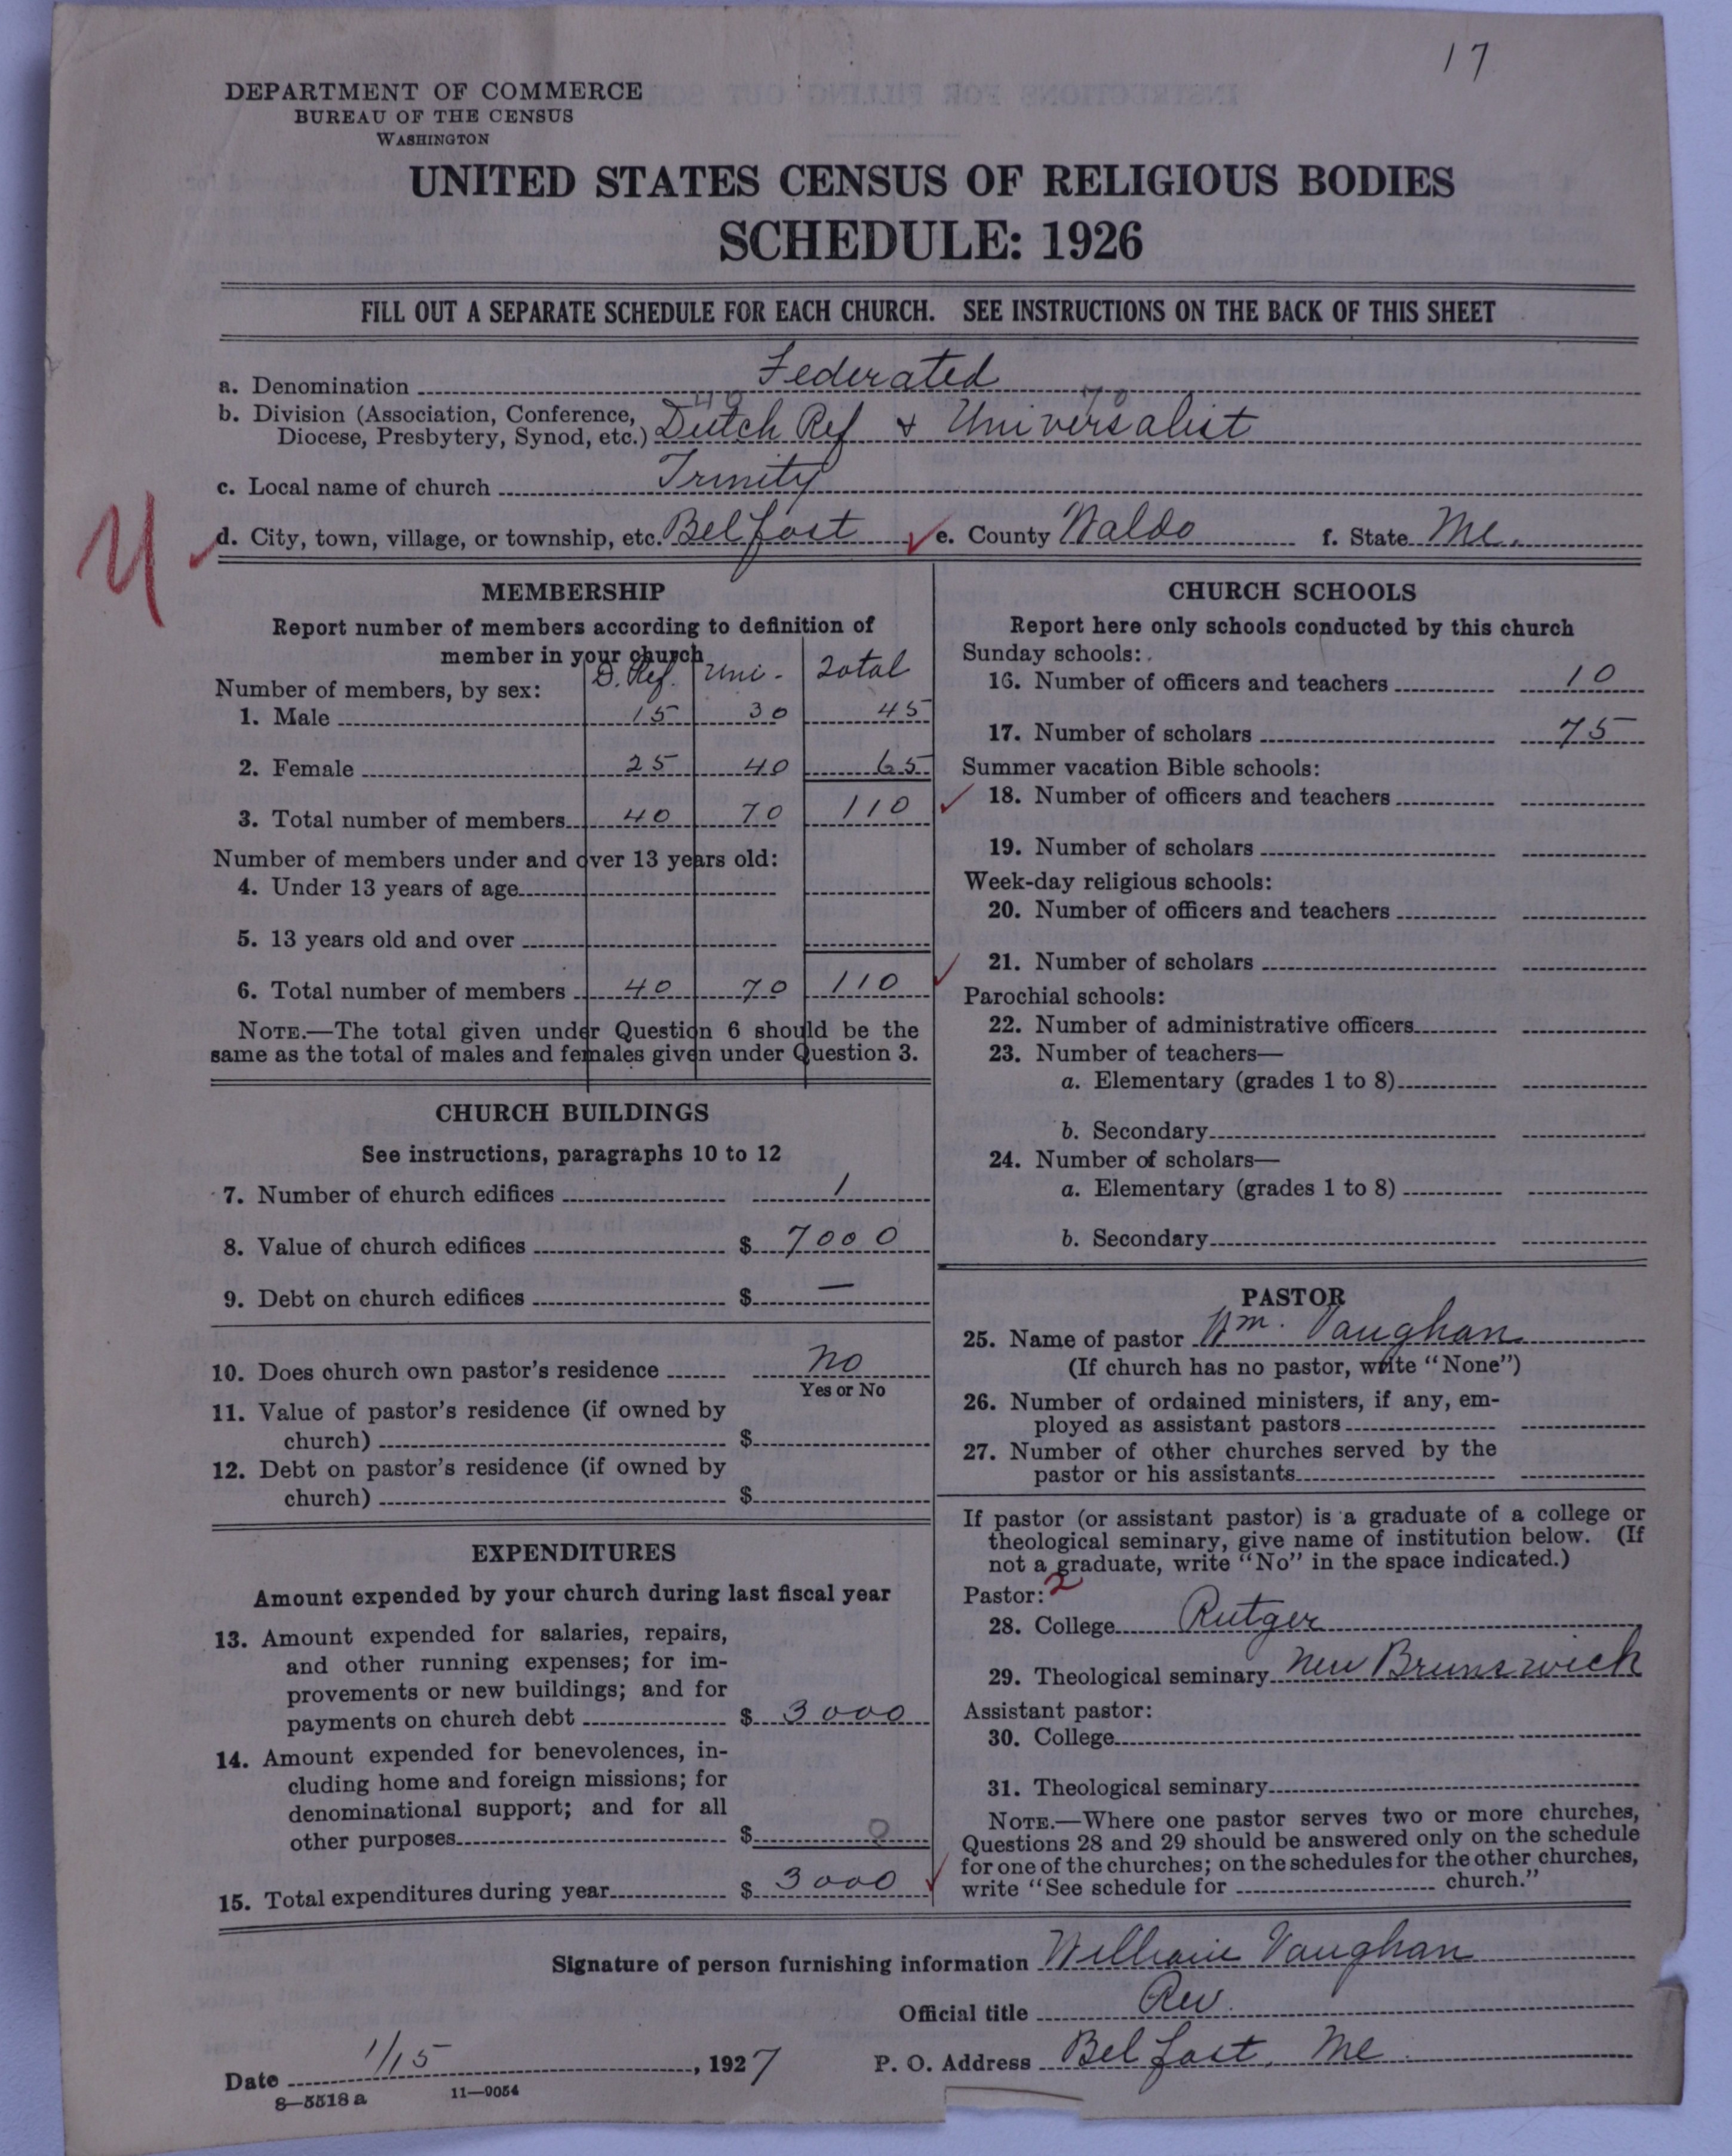 17
DEPARTMENT OF COMMERCE
BUREAU OF THE CENSUS
WASHINGTON
UNITED STATES CENSUS OF RELIGIOUS BODIES
SCHEDULE: 1926
FILL OUT A SEPARATE SCHEDULE FOR EACH CHURCH. SEE INSTRUCTIONS ON THE BACK OF THIS SHEET
a. Denomination Federated
40 70
b. Division (Association, Conference,
Diocese, Presbytery, Synod, etc.) Dutch Ref & Universalist
c. Local name of church Trinity
d. City, town, village, or township, etc. Belfast e. County Waldo f. State Me.
MEMBERSHIP
Report number of members according to definition of
member in your church
D. Ref. Uni. Total
Number of members, by sex:
1. Male 15 30 45
2. Female 25 40 65
3. Total number of members 40 70 110
Number of members under and over 13 years old:
4. Under 13 years of age
5. 13 years old and over
6. Total number of members 40 70 110
NOTE.—The total given under Question 6 should be the
same as the total of males and females given under Question 3.
CHURCH BUILDINGS
See instructions, paragraphs 10 to 12
7. Number of church edifices 1
8. Value of church edifices $ 7000
9. Debt on church edifices $ —
10. Does church own pastor's residence no
Yes or No
11. Value of pastor's residence (if owned by
church) $
12. Debt on pastor's residence (if owned by
church) $
EXPENDITURES
Amount expended by your church during last fiscal year
13. Amount expended for salaries, repairs,
and other running expenses; for im-
provements or new buildings; and for
payments on church debt $ 3000
14. Amount expended for benevolences, in-
cluding home and foreign missions; for
denominational support; and for all
other purposes $ 0
15. Total expenditures during year $ 3000
CHURCH SCHOOLS
Report here only schools conducted by this church
Sunday schools:
16. Number of officers and teachers 10
17. Number of scholars 75
Summer vacation Bible schools:
18. Number of officers and teachers
19. Number of scholars
Week-day religious schools:
20. Number of officers and teachers
21. Number of scholars
Parochial schools:
22. Number of administrative officers
23. Number of teachers—
a. Elementary (grades 1 to 8)
b. Secondary
24. Number of scholars—
a. Elementary (grades 1 to 8)
b. Secondary
PASTOR
25. Name of pastor Wm. Vaughan
(If church has no pastor, write "None")
26. Number of ordained ministers, if any, em-
ployed as assistant pastors
27. Number of other churches served by the
pastor or his assistants
If pastor (or assistant pastor) is a graduate of a college or
theological seminary, give name of institution below. (If
not a graduate, write "No" in the space indicated.)
Pastor: 2
28. College Rutger
29. Theological seminary New Brunswick
Assistant pastor:
30. College
31. Theological seminary
NOTE.—Where one pastor serves two or more churches,
Questions 28 and 29 should be answered only on the schedule
for one of the churches; on the schedules for the other churches,
write "See schedule for church."
Signature of person furnishing information William Vaughan
Official title Rev.
Date 1/15, 1927 P. O. Address Belfast, Me
8—5518 a 11—9054